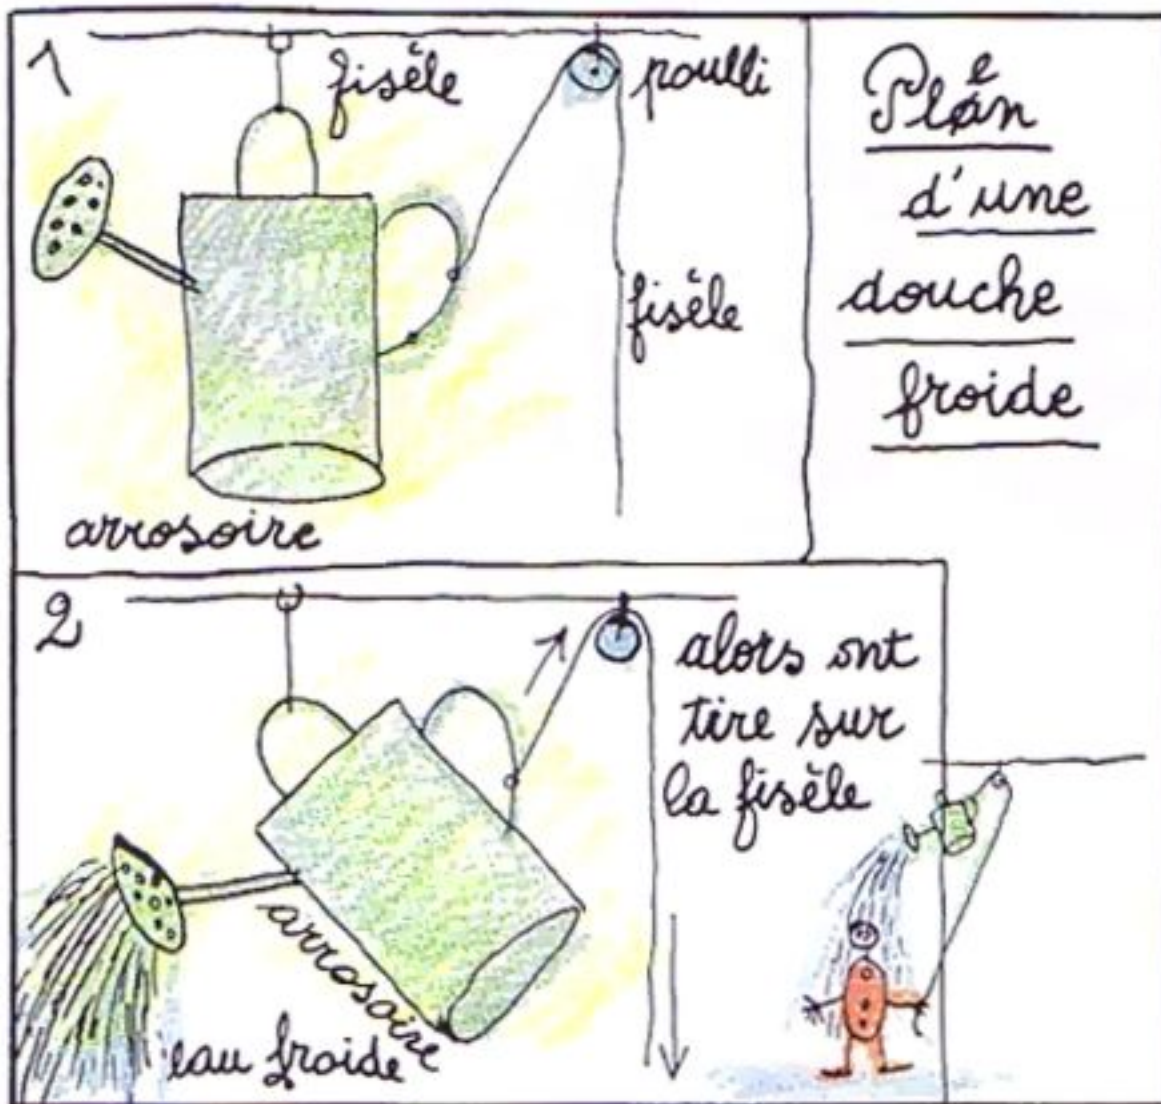 1
fisèle
poulli
fisèle
arrosoire
Plen
d'une
douche
froide
2
alors ont
tire sur
la fisèle
arrosoire
eau froide